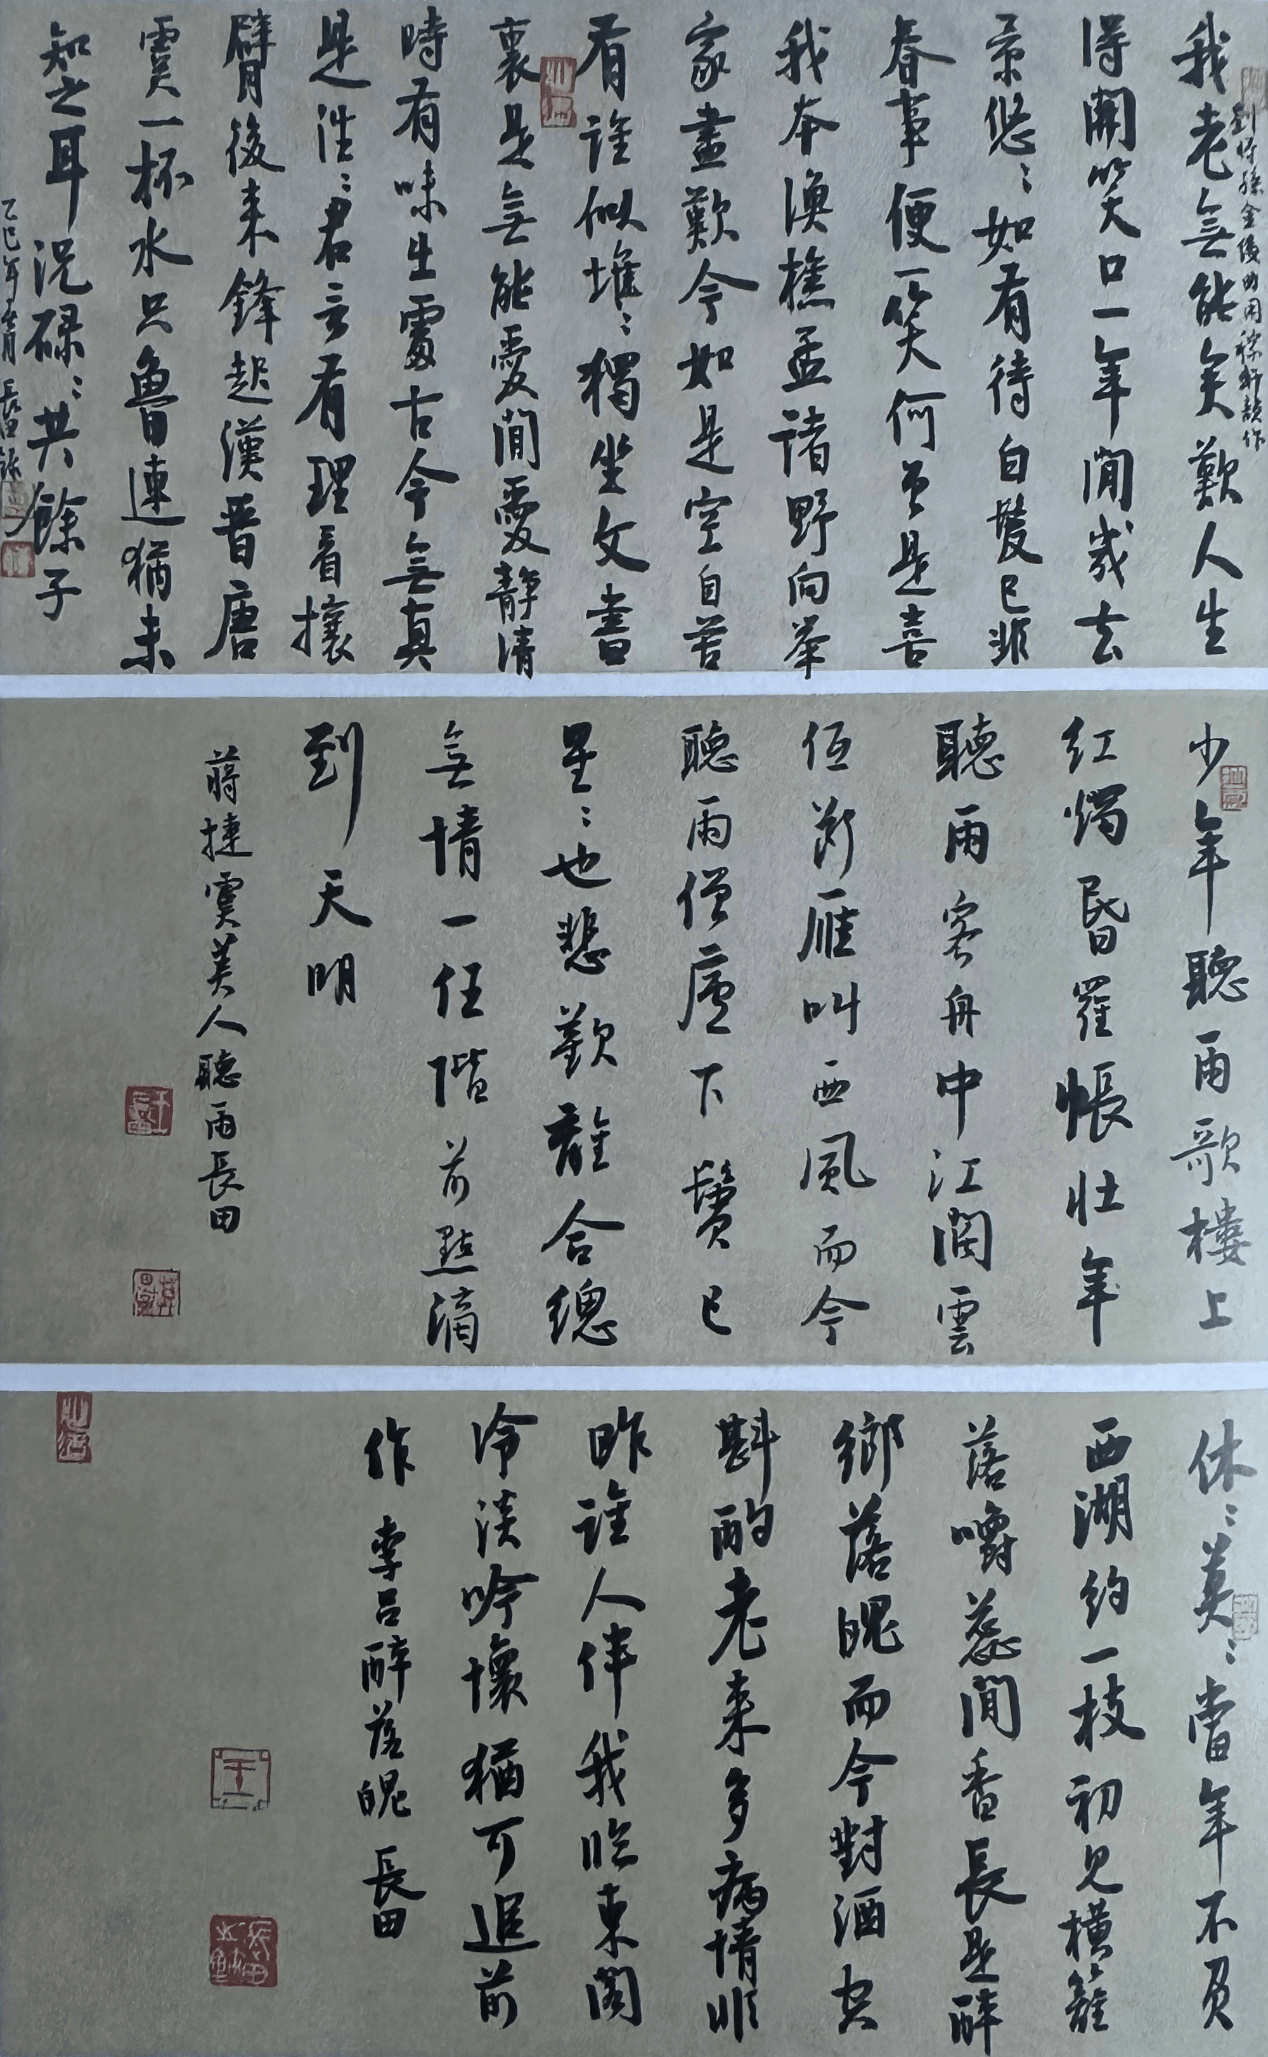 我老無能矣歎人生
得開笑口一年閒幾去
景悠〻如有待白髮已非
春事便一笑何曾是喜
我本漁樵孟諸野向举
家盡歎今如是空自苦
有誰似堆〻獨坐文書
裏是無能愛閒愛靜清
時有味生處古今無真
是浩〻君言有理看攘
臂後来鋒起漢晋唐
虞一杯水只魯連猶未
知之耳況碌〻共餘子
少年聽雨歌樓上
红燭昏羅帳壮年
聽雨客舟中江闊雲
低斷雁叫西風而今
聽雨僧廬下鬢已
星〻也悲歡離合總
無情一任階前點滴
到天明
蔣捷虞美人聽雨長田
休〻莫〻當年不負
西湖約一枝初見橫籬
落嚼蕊聞香長是醉
鄉落魄而今對酒空
斟酌老来多病情非
昨誰人伴我臨東閣
冷淡吟懷猶可追前
作 李吕醉落魄 長田